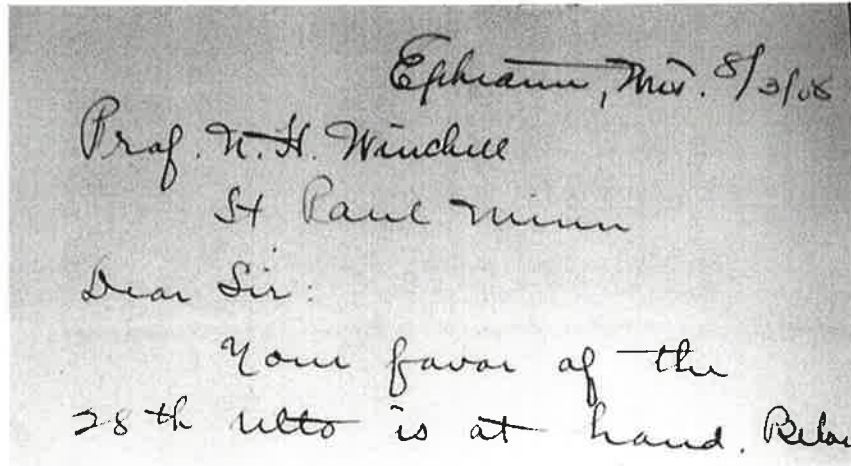 Ephraim, Wis. 8/3/08
Prof. N. H. Winchell
St Paul Minn
Dear Sir:
Your favor of the
28th ulto is at hand. Below